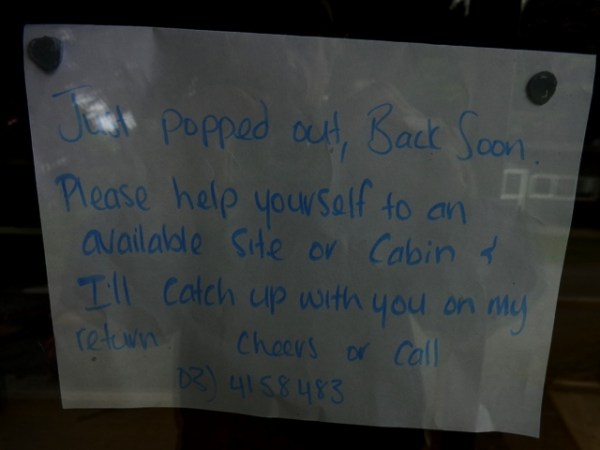 Just popped out, Back Soon.
Please help yourself to an
available Site or Cabin &
I'll Catch up with you on my
return Cheers or Call
03) 4158483